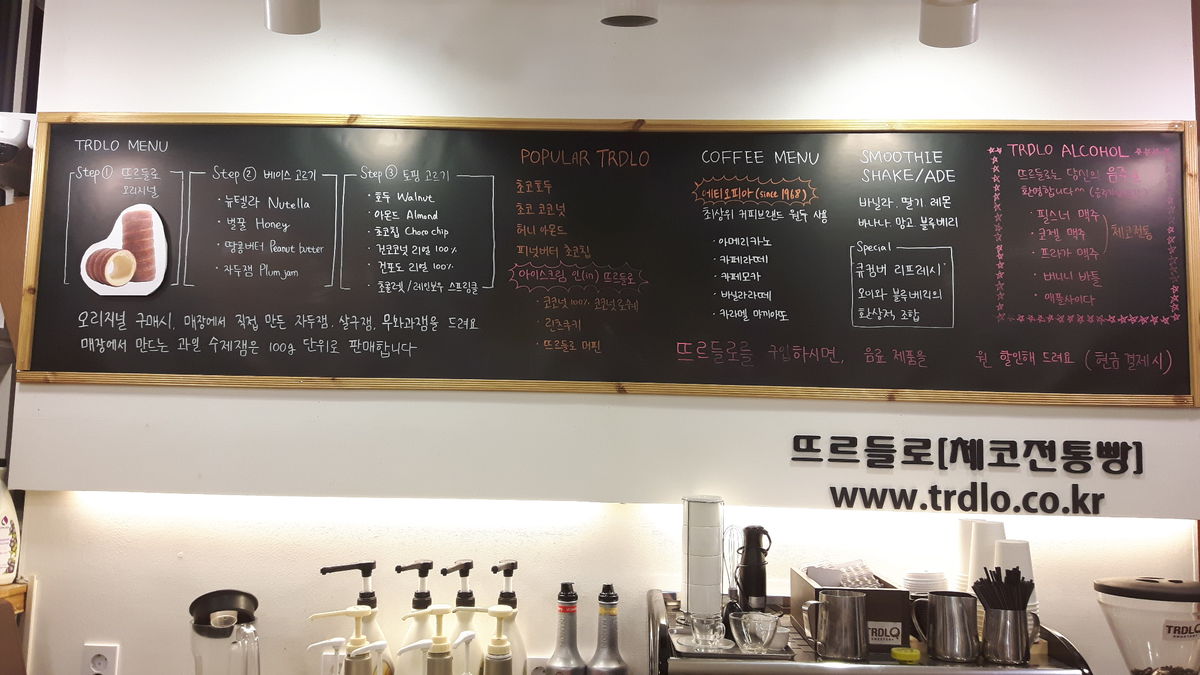 TRDLO MENU
Step ① 뜨르들로
오리지널
Step ② 베이스 고르기
· 누텔라 Nutella
· 벌꿀 Honey
· 땅콩버터 Peanut butter
· 자두잼 Plum jam
Step ③ 토핑 고르기
· 호두 Walnut
· 아몬드 Almond
· 초코칩 Choco chip
· 건코코넛 리얼 100%
· 건포도 리얼 100%
· 초콜렛 / 레인보우 스프링클
오리지널 구매시, 매장에서 직접 만든 자두잼, 살구잼, 무화과잼을 드려요
매장에서 만드는 과일 수제잼은 100g 단위로 판매합니다
POPULAR TRDLO
초코호두
초코 코코넛
허니 아몬드
피넛버터 초코칩
아이스크림 인(in) 뜨르들로
· 코코넛 100% 코코넛로쉐
· 린츠쿠키
· 뜨르들로 머핀
COFFEE MENU
에티오피아 (since 1968)
최상위 커피브랜드 원두 사용
· 아메리카노
· 카페라떼
· 카페모카
· 바닐라라떼
· 카라멜 마끼아또
SMOOTHIE
SHAKE/ADE
바닐라. 딸기. 레몬
바나나. 망고. 블루베리
Special
큐컴버 리프레시
오이와 블루베리의
환상적, 조합
TRDLO ALCOHOL
뜨르들로는 당신의
환영합니다^^
· 필스너 맥주
· 코젤 맥주
· 프라가 맥주
체코전통
· 버니니 바틀
· 애플사이다
뜨르들로를 구입하시면, 음료 제품을 원 할인해 드려요 (현금 결제시)
뜨르들로[체코전통빵]
www.trdlo.co.kr
TRDLO
TRDLO